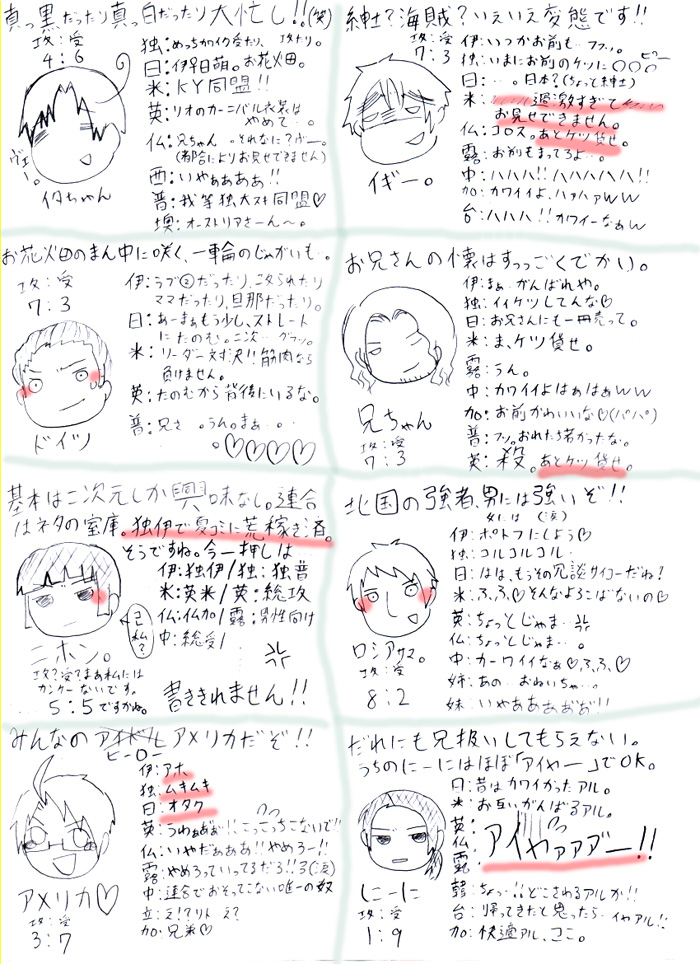 真っ黒だったり真っ白だったり大忙し!!(笑)
攻:受
4:6
独:めっちゃ受たり、攻たり。
日:伊年日萌。お花畑。
米:KY同盟!!
英:リオのカーニバル衣装は
やめて…。
仏:兄ちゃん それなに?ガー。
(都合によりお見せできません)
西:いやぁぁぁぁ!!
普:我等独大スキ同盟♡
墺:オーストリアさーん〜。
ヴェー。
イタちゃん
紳士?海賊?いえいえ変態です!!
攻:受
7:3
伊:いつかお前も…フフッ。
独:いまにお前のケツに〇〇〇
ピー
日:…。日本?(ちょっと紳士)
米:過激すぎて
お見せできません。
仏:コロス。あとケツ貸せ。
露:お前もまってろよ…。
中:ハハハ!!ハハハハハ!!
加:カワイイよ、ハァハァww
台:ハハハ!!カワイーなぁw
イギー。
お花畑のまん中に咲く、一輪のじゃがいも。
攻:受
7:3
伊:ラブ②だったり、攻られたり
ママだったり、旦那だったり。
日:あーまぁもう少し、ストレート
にたのむ。二次…グッ。
米:リーダー対決!!筋肉なら
負けません。
英:たのむから背後にいるな。
普:兄さ…。うん。まぁ…。
。♡♡♡♡
ドイツ
お兄さんの懐はすっっごくでかい。
伊:まぁ、がんばれや。
独:イイケツしてんな♡
日:お兄さんにも一冊売って。
米:ま、ケツ貸せ。
露:うん。
中:カワイイよはぁはぁww
加:お前かわいいな♡(パパ)
普:フッ。おれたち若かったな。
英:殺。あとケツ貸せ。
兄ちゃん
攻:受
7:3
基本は二次元しか興味なし。連合
はネタの宝庫。独伊で夏コミに荒稼ぎ済。
そうですね。今一押しは…
伊:独伊/独:独普
米:英米/英:総攻
仏:仏加/露:男性向け
中:総受/
書ききれません!!
己
私?
ニホン。
攻?受?まあ私には
カンケーないです。
5:5ですかね。
北国の強者、男には強いぞ!!
女には(涙)
伊:ポトフにしよう♡
独:コルコルコル…
日:はは、もうその冗談サイコーだね?
米:ふ、ふ、♡そんなよろこばないの♡
英:ちょっとじゃま…。
仏:ちょっとじゃま…。
中:カーワイイなぁ♡ふ、ふ、♡
姉:あの…おねいちゃ…。
妹:いやああああぁ!!
ロシアサマ。
攻:受
8:2
みんなのアイドルアメリカだぞ!!
ヒーロー
伊:アホ
独:ムキムキ
日:オタク
英:うわぁぁぁ!!こっこっちこないで!!
仏:いやだぁぁぁ!!やめろー!!
露:やめろっていってるだろ!!ろ(涙)
中:連合でおそってこない唯一の奴
立:え!?リト え?
加:兄弟♡
アメリカ♡
攻:受
3:7
だれにも兄扱いしてもらえない。
うちのにーにはほぼ「アイヤー」でOK。
日:昔はカワイかったアル。
米:お互いがんばるアル。
英:
仏:
露:
アイヤァァアー!!
韓:ちょっ…!!どこさわるアルか!!
台:帰ってきたと思ったら…イヤアル!!
加:快適アル、ここ。
にーに
攻:受
1:9